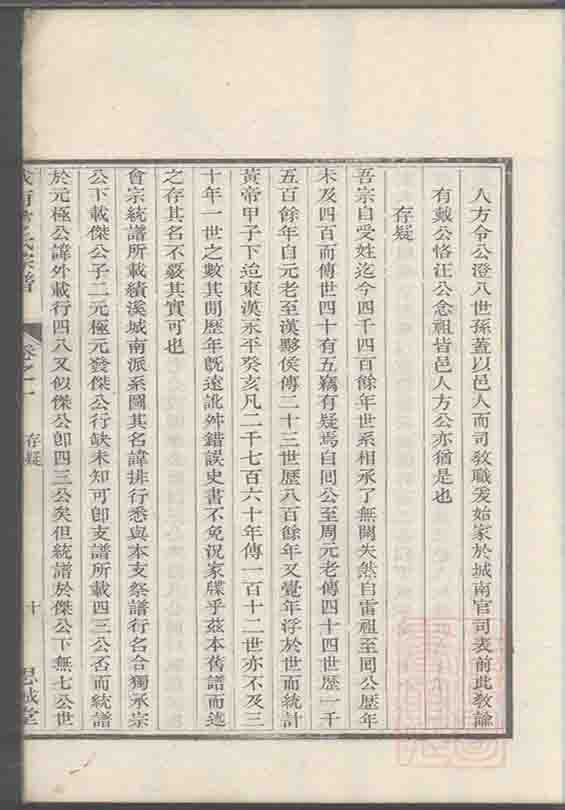 人方令公澄八世孫蓋以邑人而司敎職爰始家於城南官司表前此敎諭
有戴公恪汪公念祖皆邑人方公亦猶是也
存疑
吾宗自受姓迄今四千四百餘年世系相承了無闕失然自雷祖至囘公歷年
未及四百而傳世四十有五竊有疑焉自囘公至周元老傳四十四世歷一千
五百餘年自元老至漢黟侯傳二十三世歷八百餘年又覺年浮於世而統計
黃帝甲子下迨東漢永平癸亥凡二千七百六十年傳一百十二世亦不及三
十年一世之數其閒歷年旣遠訛舛錯誤史書不免況家牒乎茲本舊譜而述
之存其名不覈其實可也
會宗統譜所載績溪城南派系圖其名諱排行悉與本支祭譜行名合獨承宗
公下載傑公子二元極元發傑公行缺未知可卽支譜所載四三公否而統譜
於元極公諱外載行四八又似傑公卽四三公矣但統譜於傑公下無七公世
南 氏宗譜 卷之一 存疑 十 思誠堂